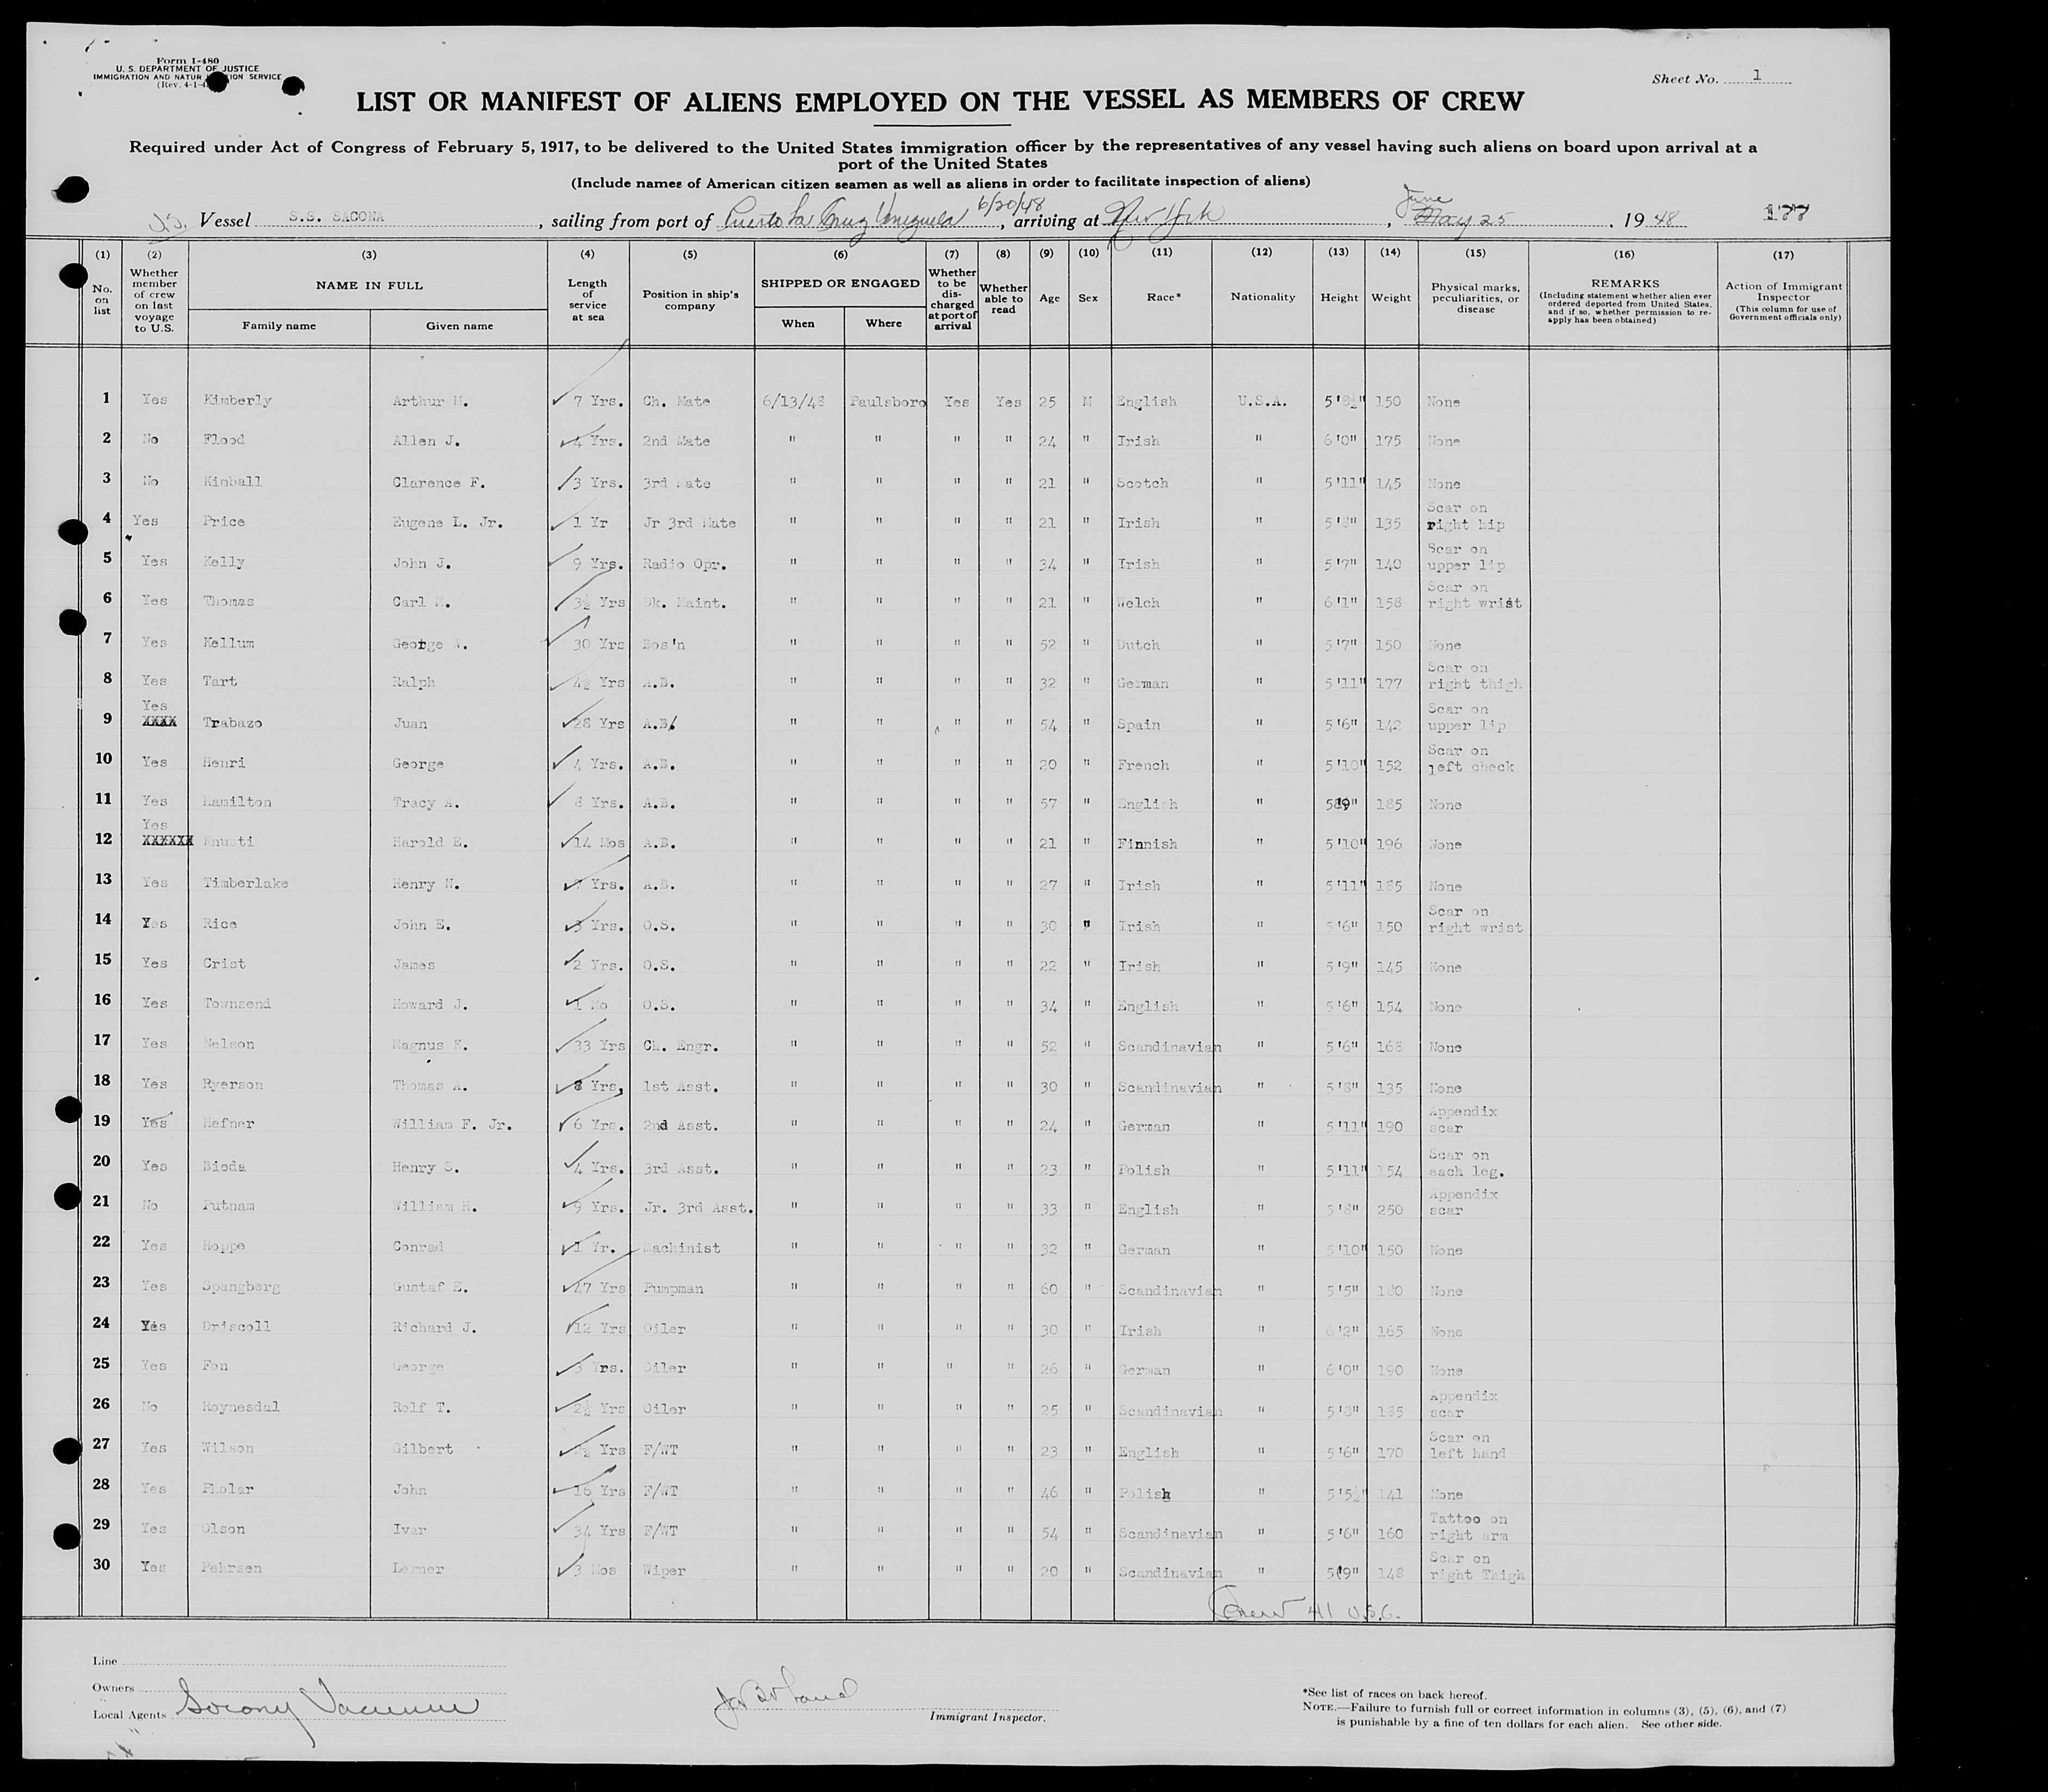 Form I-480
U. S. DEPARTMENT OF JUSTICE
IMMIGRATION AND NATUR TION SERVICE
(Rev. 4-1-4
Sheet No. 1
LIST OR MANIFEST OF ALIENS EMPLOYED ON THE VESSEL AS MEMBERS OF CREW
Required under Act of Congress of February 5, 1917, to be delivered to the United States immigration officer by the representatives of any vessel having such aliens on board upon arrival at a
port of the United States
(Include names of American citizen seamen as well as aliens in order to facilitate inspection of aliens)
Vessel S.S. SACONA, sailing from port of Puerto La Cruz Venezuela 6/20/48, arriving at New York, June May 25, 19 48 177
(1) (2) (3) (4) (5) (6) (7) (8) (9) (10) (11) (12) (13) (14) (15) (16) (17)
No. on list
Whether member of crew on last voyage to U.S.
NAME IN FULL
Family name Given name
Length of service at sea
Position in ship's company
SHIPPED OR ENGAGED
When Where
Whether to be discharged at port of arrival
Whether able to read
Age Sex Race* Nationality Height Weight
Physical marks, peculiarities, or disease
REMARKS
(Including statement whether alien ever ordered deported from United States, and if so, whether permission to reapply has been obtained)
Action of Immigrant Inspector
(This column for use of Government officials only)
1 Yes Kimberly Arthur M. 7 Yrs. Ch. Mate 6/13/48 Paulsboro Yes Yes 25 M English U.S.A. 5'8½" 150 None
2 No Flood Allen J. 4 Yrs. 2nd Mate " " " " 24 " Irish " 6'0" 175 None
3 No Kimball Clarence F. 3 Yrs. 3rd Mate " " " " 21 " Scotch " 5'11" 145 None
4 Yes Price Eugene L. Jr. 1 Yr Jr 3rd Mate " " " " 21 " Irish " 5'8" 135 Scar on right hip
5 Yes Kelly John J. 9 Yrs. Radio Opr. " " " " 34 " Irish " 5'7" 140 Scar on upper lip
6 Yes Thomas Carl M. 3½ Yrs Dk. Maint. " " " " 21 " Welch " 6'1" 158 Scar on right wrist
7 Yes Kellum George W. 30 Yrs Bos'n " " " " 52 " Dutch " 5'7" 150 None
8 Yes Tart Ralph 4½ Yrs A.B. " " " " 32 " German " 5'11" 177 Scar on right thigh
9 Yes XXXX Trabazo Juan 28 Yrs A.B. " " " " 54 " Spain " 5'6" 142 Scar on upper lip
10 Yes Henri George 4 Yrs. A.B. " " " " 20 " French " 5'10" 152 Scar on left check
11 Yes Hamilton Tracy A. 8 Yrs. A.B. " " " " 57 " English " 5'9" 185 None
12 Yes XXXXXX Knusti Harold E. 14 Mos A.B. " " " " 21 " Finnish " 5'10" 196 None
13 Yes Timberlake Henry N. 7 Yrs. A.B. " " " " 27 " Irish " 5'11" 185 None
14 Yes Rice John E. 3 Yrs. O.S. " " " " 30 " Irish " 5'6" 150 Scar on right wrist
15 Yes Crist James 2 Yrs. O.S. " " " " 22 " Irish " 5'9" 145 None
16 Yes Townsend Howard J. 1 Mo O.S. " " " " 34 " English " 5'6" 154 None
17 Yes Nelson Magnus K. 33 Yrs Ch. Engr. " " " " 52 " Scandinavian " 5'6" 168 None
18 Yes Ryerson Thomas A. 8 Yrs, 1st Asst. " " " " 30 " Scandinavian " 5'8" 135 None
19 Yes Hefner William F. Jr. 6 Yrs. 2nd Asst. " " " " 24 " German " 5'11" 190 Appendix scar
20 Yes Bioda Henry S. 4 Yrs. 3rd Asst. " " " " 23 " Polish " 5'11" 154 Scar on each leg.
21 No Putnam William H. 9 Yrs. Jr. 3rd Asst. " " " " 33 " English " 5'8" 250 Appendix scar
22 Yes Hoppe Conrad 1 Yr. Machinist " " " " 32 " German " 5'10" 150 None
23 Yes Spangberg Gustaf E. 47 Yrs Pumpman " " " " 60 " Scandinavian " 5'5" 180 None
24 Yes Driscoll Richard J. 12 Yrs Oiler " " " " 30 " Irish " 6'2" 165 None
25 Yes Fon George 3 Yrs. Oiler " " " " 26 " German " 6'0" 190 None
26 No Roynesdal Rolf T. 2½ Yrs Oiler " " " " 25 " Scandinavian " 5'8" 185 Appendix scar
27 Yes Wilson Gilbert Yrs F/WT " " " " 23 " English " 5'6" 170 Scar on left hand
28 Yes Pholar John 16 Yrs F/WT " " " " 46 " Polish " 5'5½" 141 None
29 Yes Olson Ivar 34 Yrs F/WT " " " " 54 " Scandinavian " 5'6" 160 Tattoo on right arm
30 Yes Pehrsen Lesner 3 Mos Wiper " " " " 20 " Scandinavian " 5'9" 148 Scar on right Thigh
Crew 41 U.S.C.
Line
Owners
Local Agents Socony Vacuum
Immigrant Inspector.
*See list of races on back hereof.
NOTE.—Failure to furnish full or correct information in columns (3), (5), (6), and (7)
is punishable by a fine of ten dollars for each alien. See other side.